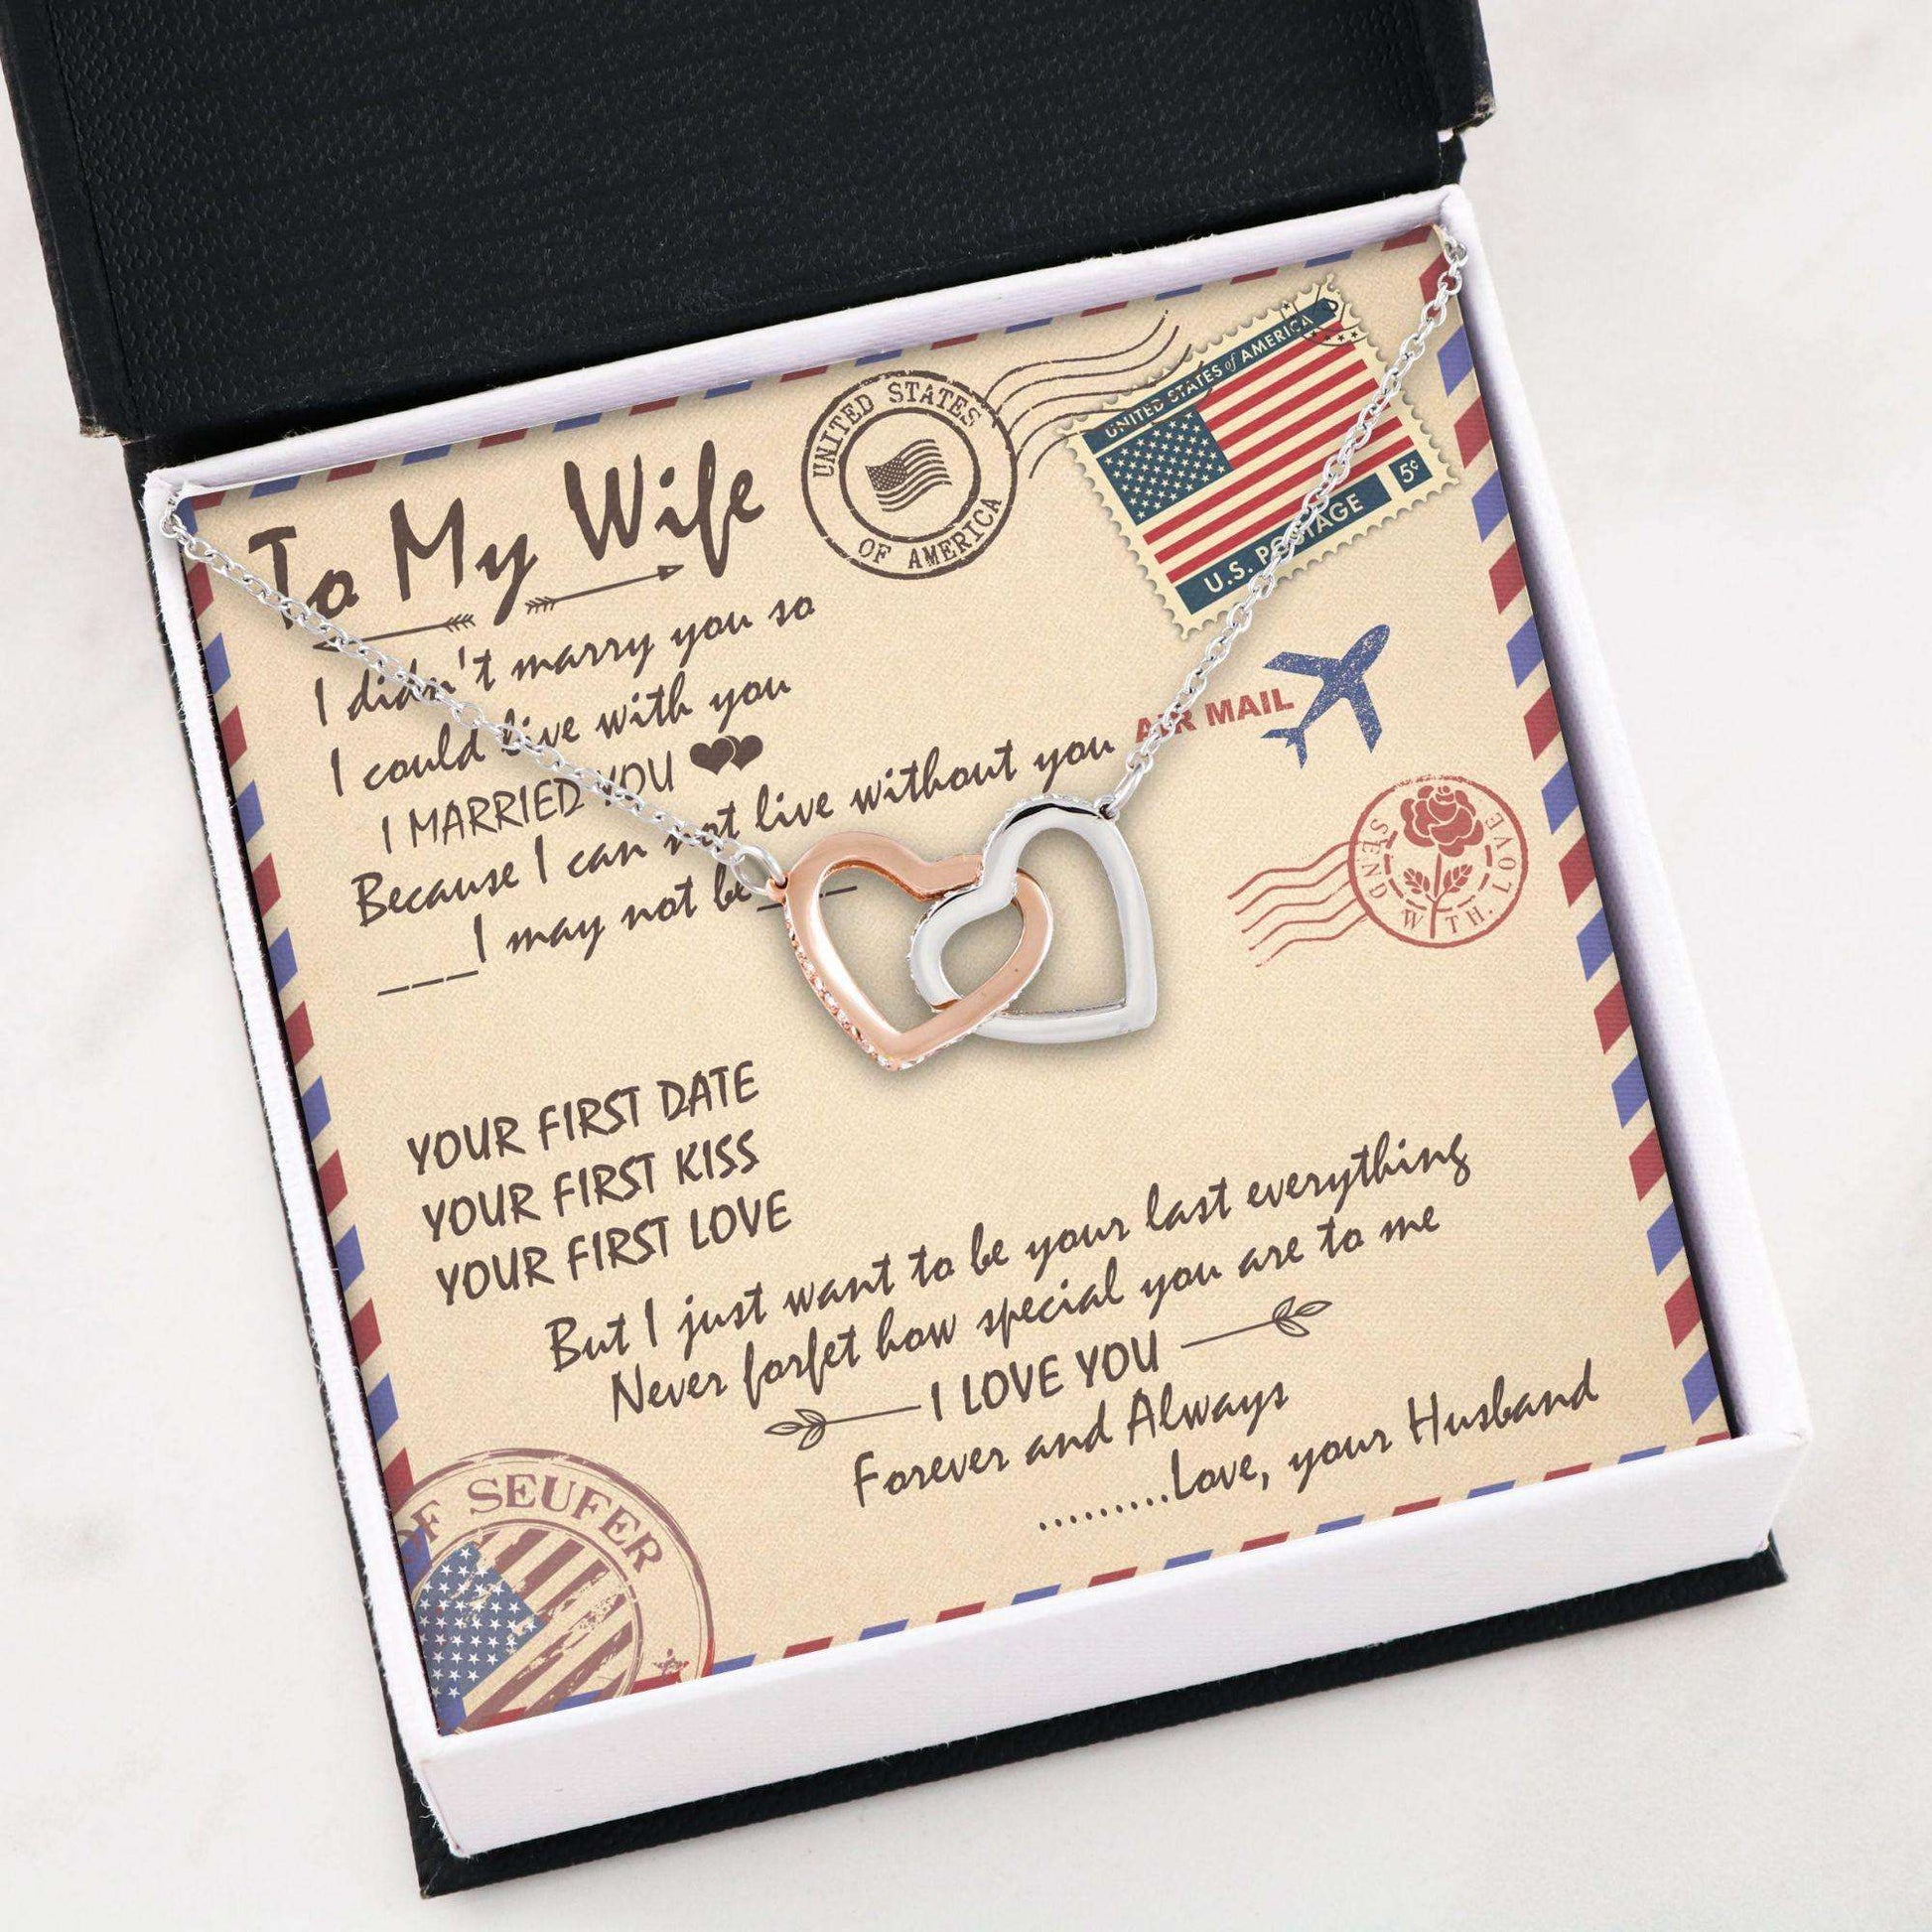 To My Wife
UNITED STATES
OF AMERICA
UNITED STATES of AMERICA
5¢
U.S. POSTAGE
I didn't marry you so
I could live with you
I MARRIED YOU
Because I can not live without you
___I may not be___
AIR MAIL
SEND WITH. LOVE
YOUR FIRST DATE
YOUR FIRST KISS
YOUR FIRST LOVE
But I just want to be your last everything
Never forfet how special you are to me
I LOVE YOU
Forever and Always
.........Love, your Husband
OF SEUFER